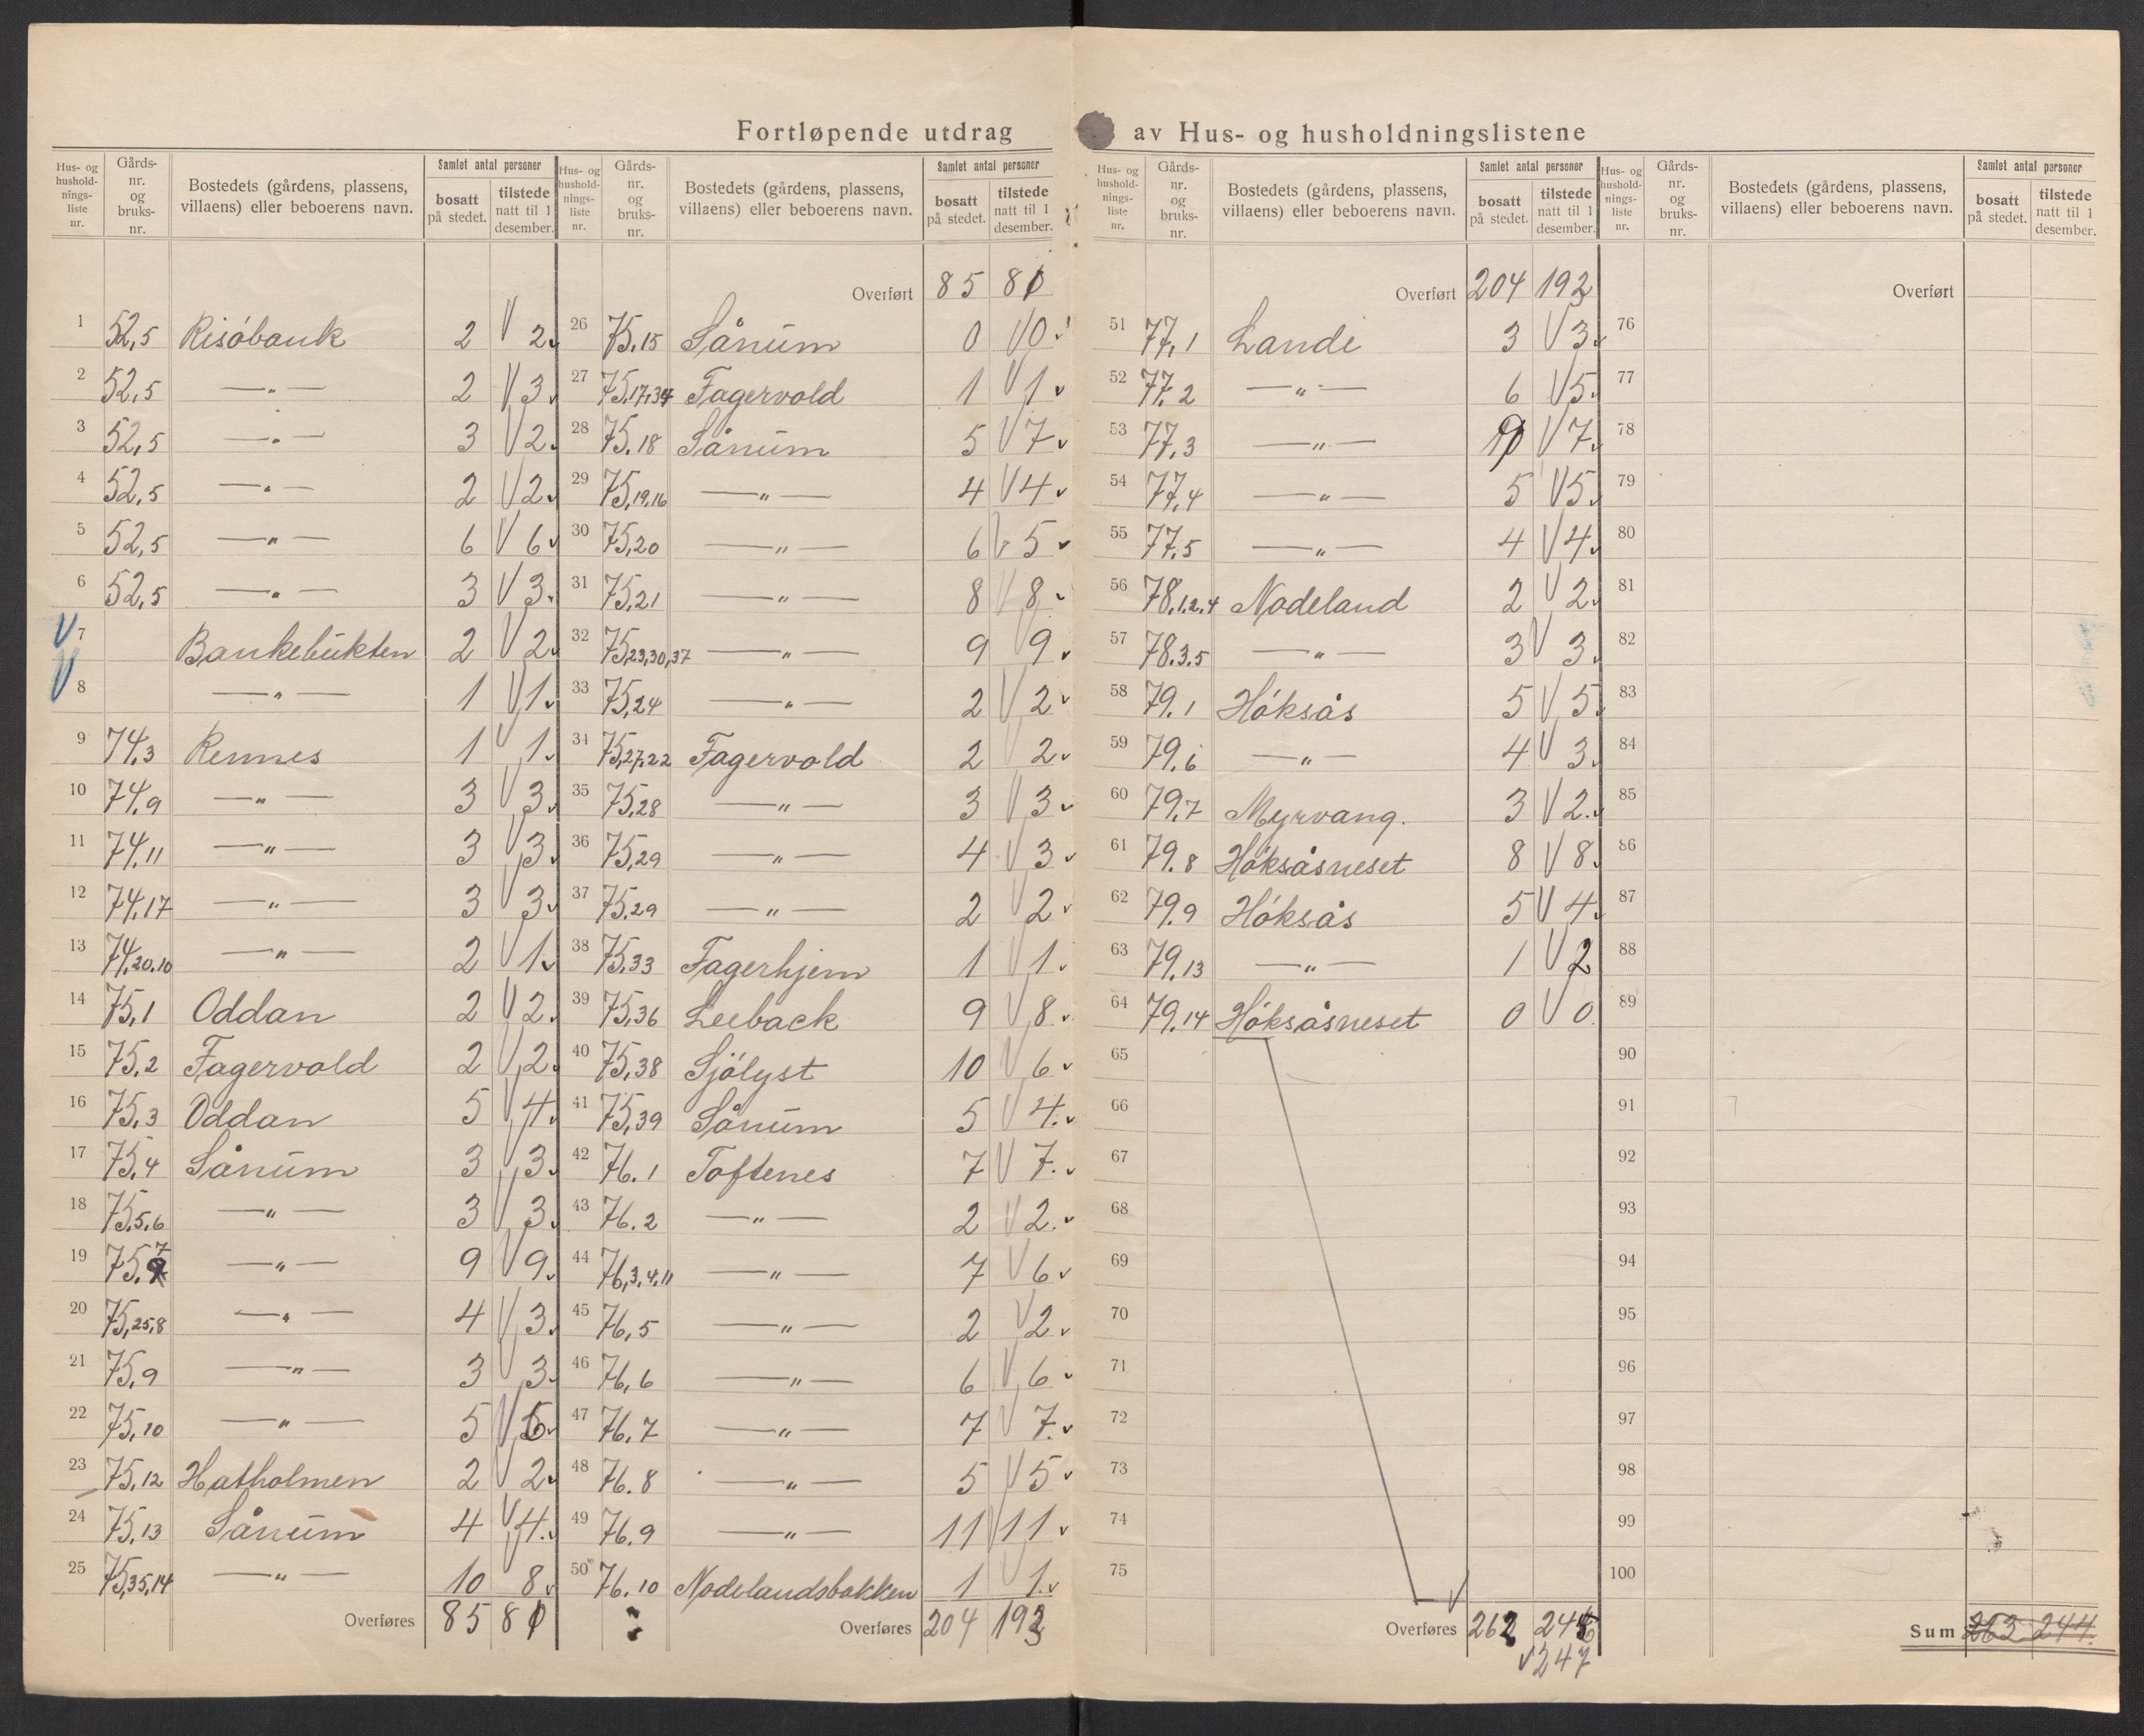 Fortløpende utdrag av Hus- og husholdningslistene
Hus- og husholdnings-liste nr. | Gårds-nr. og bruks-nr. | Bostedets (gårdens, plassens, villaens) eller beboerens navn. | Samlet antal personer bosatt på stedet. | tilstede natt til 1 desember.
1 52,5 Risøbank 2 V 2
2 52,5 —„— 2 V 3
3 52,5 —„— 3 V 2
4 52,5 —„— 2 V 2
5 52,5 —„— 6 V 6
6 52,5 —„— 3 V 3
V 7 Bankebukten 2 V 2
V 8 —„— 1 V 1
9 74,3 Rennes 1 V 1
10 74,9 —„— 3 V 3
11 74,11 —„— 3 V 3
12 74,17 —„— 3 V 3
13 74,20,10 —„— 2 V 1
14 75,1 Oddan 2 V 2
15 75,2 Fagervold 2 V 2
16 75,3 Oddan 5 V 4
17 75,4 Sånum 3 V 3
18 75,5,6 —„— 3 V 3
19 75,7 —„— 9 V 9
20 75,25,8 —„— 4 V 3
21 75,9 —„— 3 V 3
22 75,10 —„— 5 V
23 75,12 Hatholmen 2 V 2
24 75,13 Sånum 4 V 4
25 75,35,14 —„— 10 8
Overføres 85
Hus- og husholdnings-liste nr. | Gårds-nr. og bruks-nr. | Bostedets (gårdens, plassens, villaens) eller beboerens navn. | Samlet antal personer bosatt på stedet. | tilstede natt til 1 desember.
Overført 85
26 75,15 Sånum 0 V 0
27 75,17,34 Fagervold 1 V 1
28 75,18 Sånum 5 V 7
29 75,19,16 —„— 4 V 4
30 75,20 —„— 6 V 5
31 75,21 —„— 8 V 8
32 75,23,30,37 —„— 9 V 9
33 75,24 —„— 2 V 2
34 75,27,22 Fagervold 2 V 2
35 75,28 —„— 3 V 3
36 75,29 —„— 4 V 3
37 75,29 —„— 2 V 2
38 75,33 Fagerhjem 1 V 1
39 75,36 Leeback 9 V 8
40 75,38 Sjølyst 10 V 6
41 75,39 Sånum 5 V 4
42 76.1 Toftenes 7 V 7
43 76.2 —„— 2 V 2
44 76,3,4,11 —„— 7 V 6
45 76,5 —„— 2 V 2
46 76,6 —„— 6 V 6
47 76,7 —„— 7 V 7
48 76.8 —„— 5 V 5
49 76.9 —„— 11 V 11
50 76.10 Nodelandsbakken 1 V 1
Overføres 204
Hus- og husholdnings-liste nr. | Gårds-nr. og bruks-nr. | Bostedets (gårdens, plassens, villaens) eller beboerens navn. | Samlet antal personer bosatt på stedet. | tilstede natt til 1 desember.
Overført 204 192
51 77,1 Lande 3 V 3
52 77,2 —„— 6 V 5
53 77,3 —„— V 7
54 77,4 —„— 5 V 5
55 77,5 —„— 4 V 4
56 78,1,2,4 Nodeland 2 V 2
57 78.3.5 —„— 3 V 3
58 79.1 Høksås 5 V 5
59 79.6 —„— 4 V 3
60 79,7 Myrvang. 3 V 2
61 79.8 Høksåsneset 8 V 8
62 79.9 Høksås 5 V 4
63 79.13 —„— 1 V 2
64 79.14 Høksåsneset 0 V 0
65
66
67
68
69
70
71
72
73
74
75
Overføres 262
V 247
Hus- og husholdnings-liste nr. | Gårds-nr. og bruks-nr. | Bostedets (gårdens, plassens, villaens) eller beboerens navn. | Samlet antal personer bosatt på stedet. | tilstede natt til 1 desember.
Overført
76
77
78
79
80
81
82
83
84
85
86
87
88
89
90
91
92
93
94
95
96
97
98
99
100
Sum 263 244.